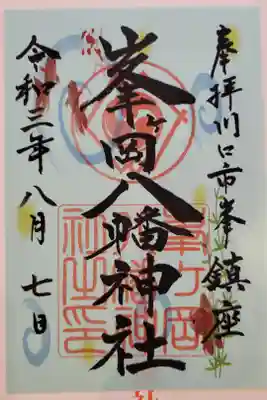 奉拝川口市峯鎮座
峯ヶ岡八幡神社
令和三年八月七日